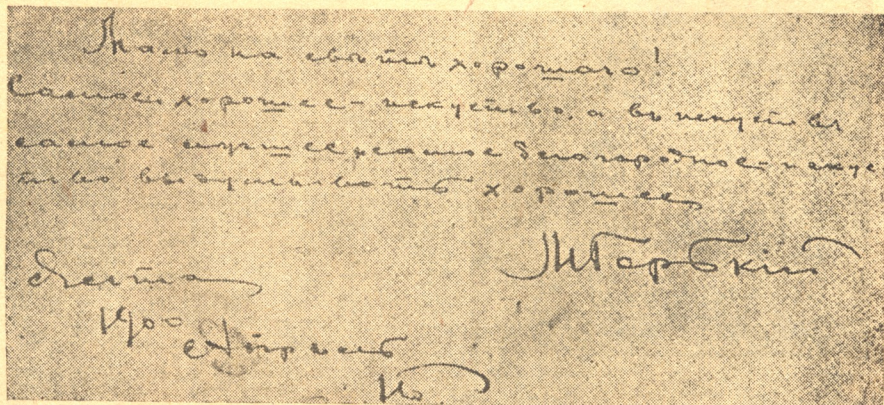 Мало на свѣтѣ хорошаго!
Самое хорошее – искуство, а въ искуствѣ
самое лучшее, самое благородное – искус-
тво выдумывать хорошее
МГорькій
Ялта
1900
Апрѣль